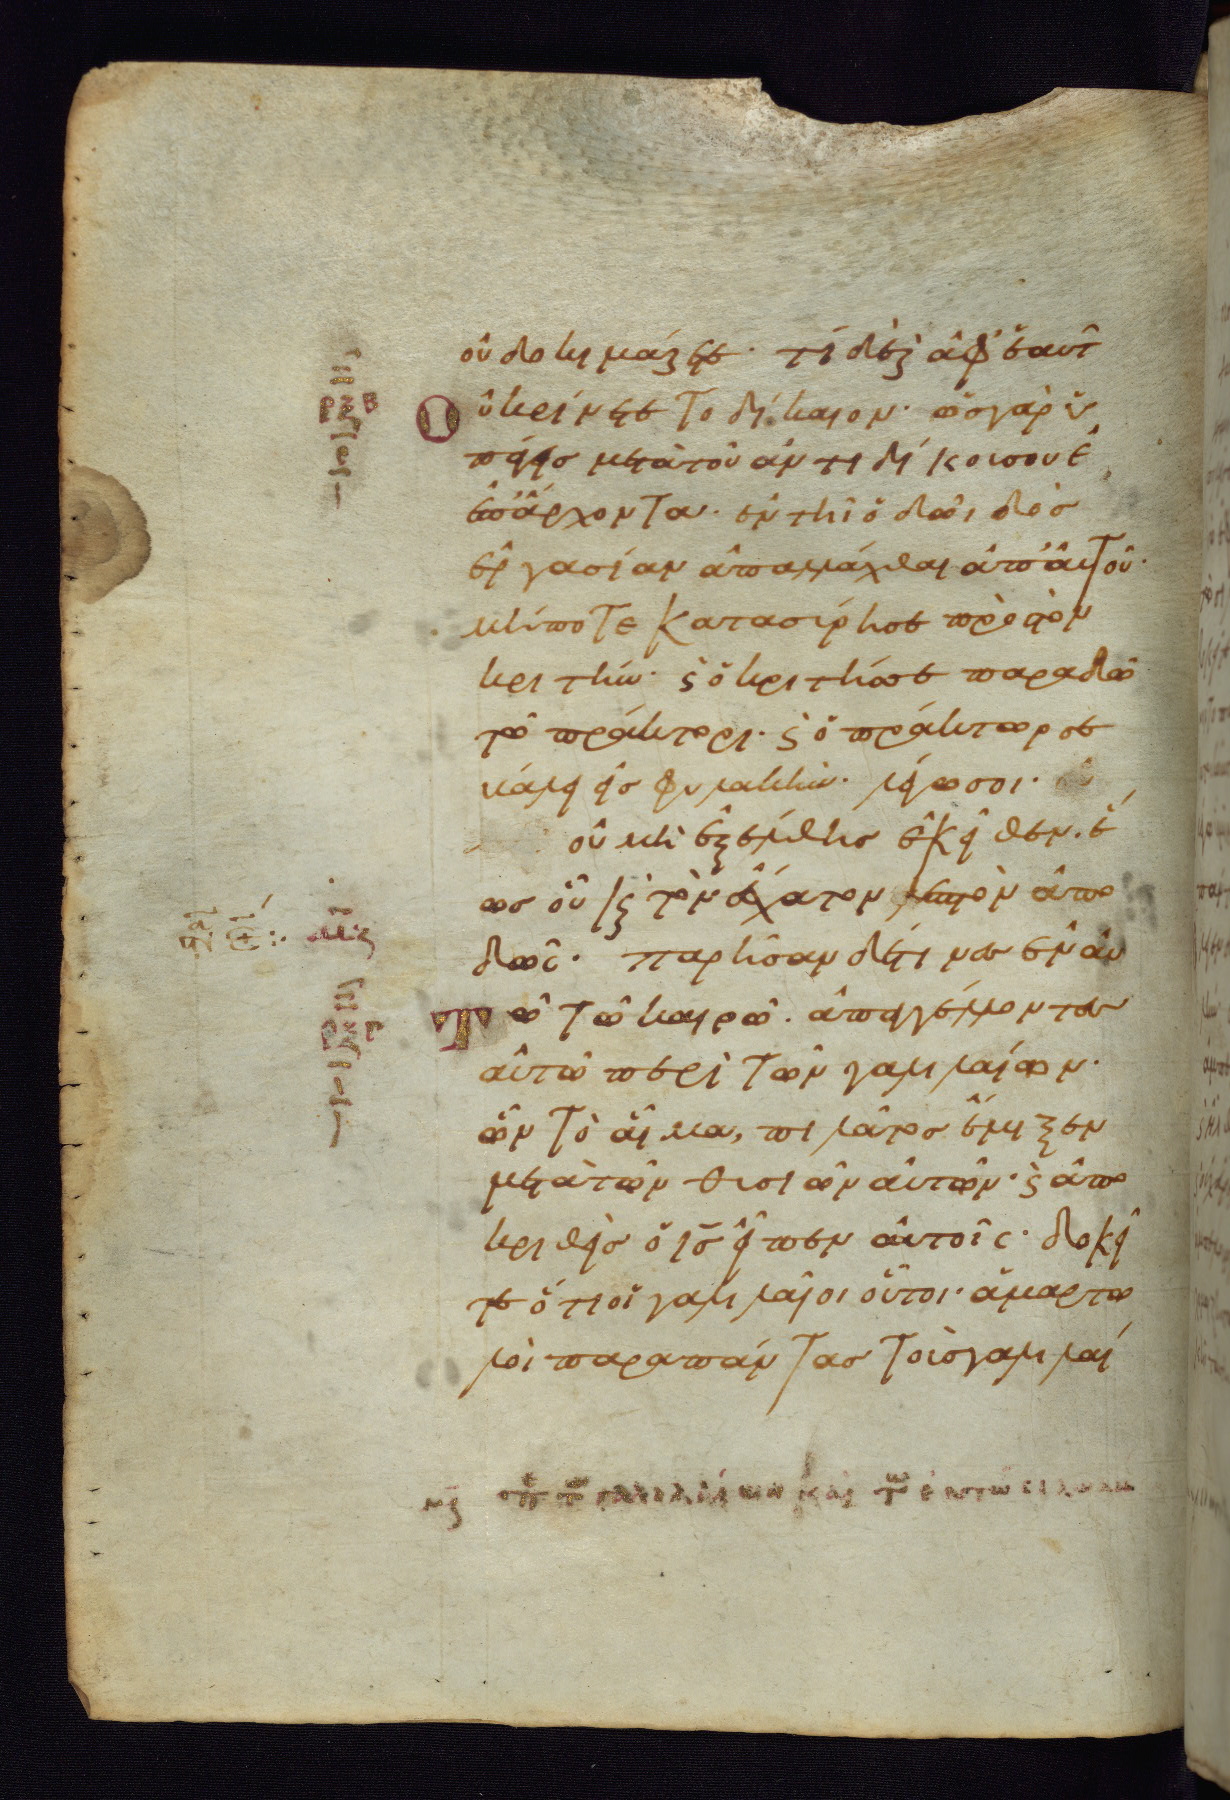 οὐ δοκιμάζετε· τί δὲ ἀφ' ἑαυτῶ
Οὐ κρίνετε τὸ δίκαιον· ὡς γὰρ ὑ
πάγεις μετὰ τοῦ ἀντιδίκου σου ἐ
π' ἄρχοντα· ἐν τῆ ὁδῶι δὸς
ἐργασίαν ἀπαλλάχθαι ἀπ' αὐτοῦ·
μήποτε κατασύρη σε πρὸς τὸν
κριτήν· ϛ ὁ κριτής σε παραδῶ
τῶ πράκτορι· ϛ ὁ πράκτωρ σε
βάλη εἰς φυλακήν· λέγω σοι·
οὐ μὴ ἐξέλθης ἐκεῖθεν· ἕ
ως οὗ ϛ τὸν ἔσχατον λεπτὸν ἀπο
δῶς· παρῆσαν δέ τινες ἐν αὐ
Τῶ τῶ καιρῶ· ἀπαγγέλλοντες
αὐτῶ περὶ τῶν γαλιλαίων·
ὧν τὸ αἷμα, πιλάτος ἔμιξεν
μετὰ τῶν θυσιῶν αὐτῶν· ϛ ἀπο
κριθεὶς ὁ ι̅ς̅ εἶπεν αὐτοῖς· δοκεῖ
τε ὅτι οἱ γαλιλαῖοι οὗτοι· ἁμαρτω
λοὶ παρὰ πάντας τοὺς γαλιλαί